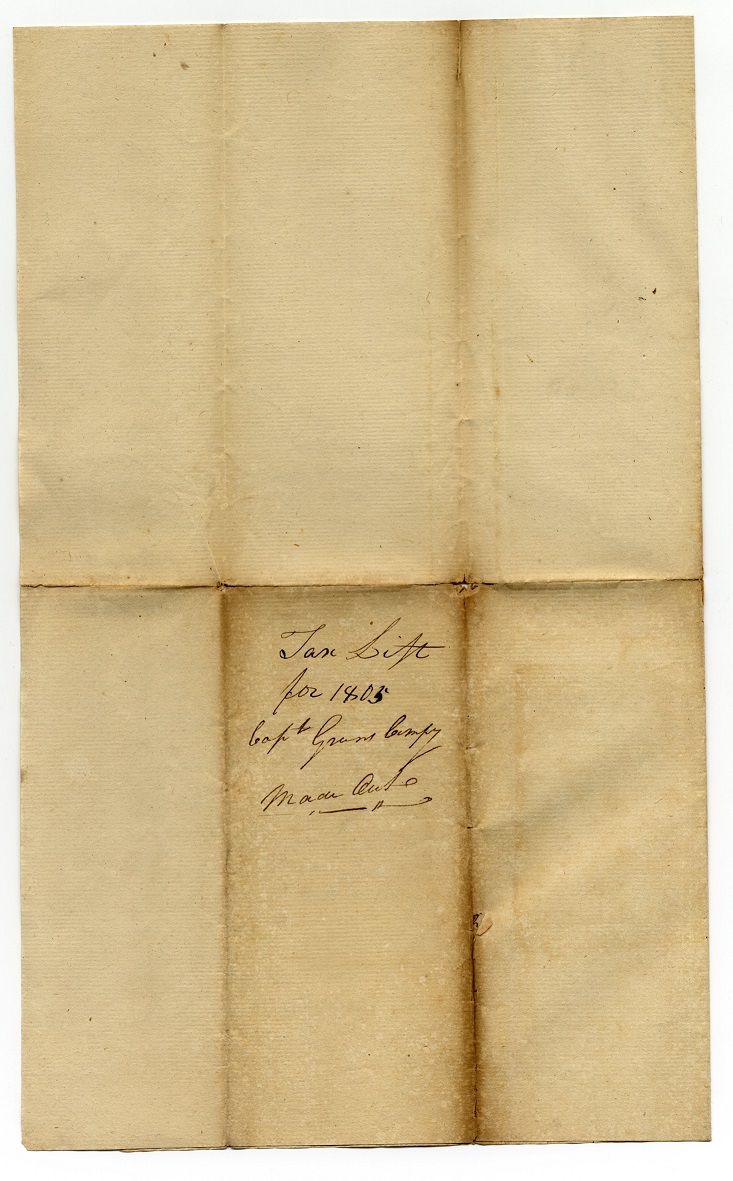 Tax List
for 1805
Capt Grams Compy
Made Out